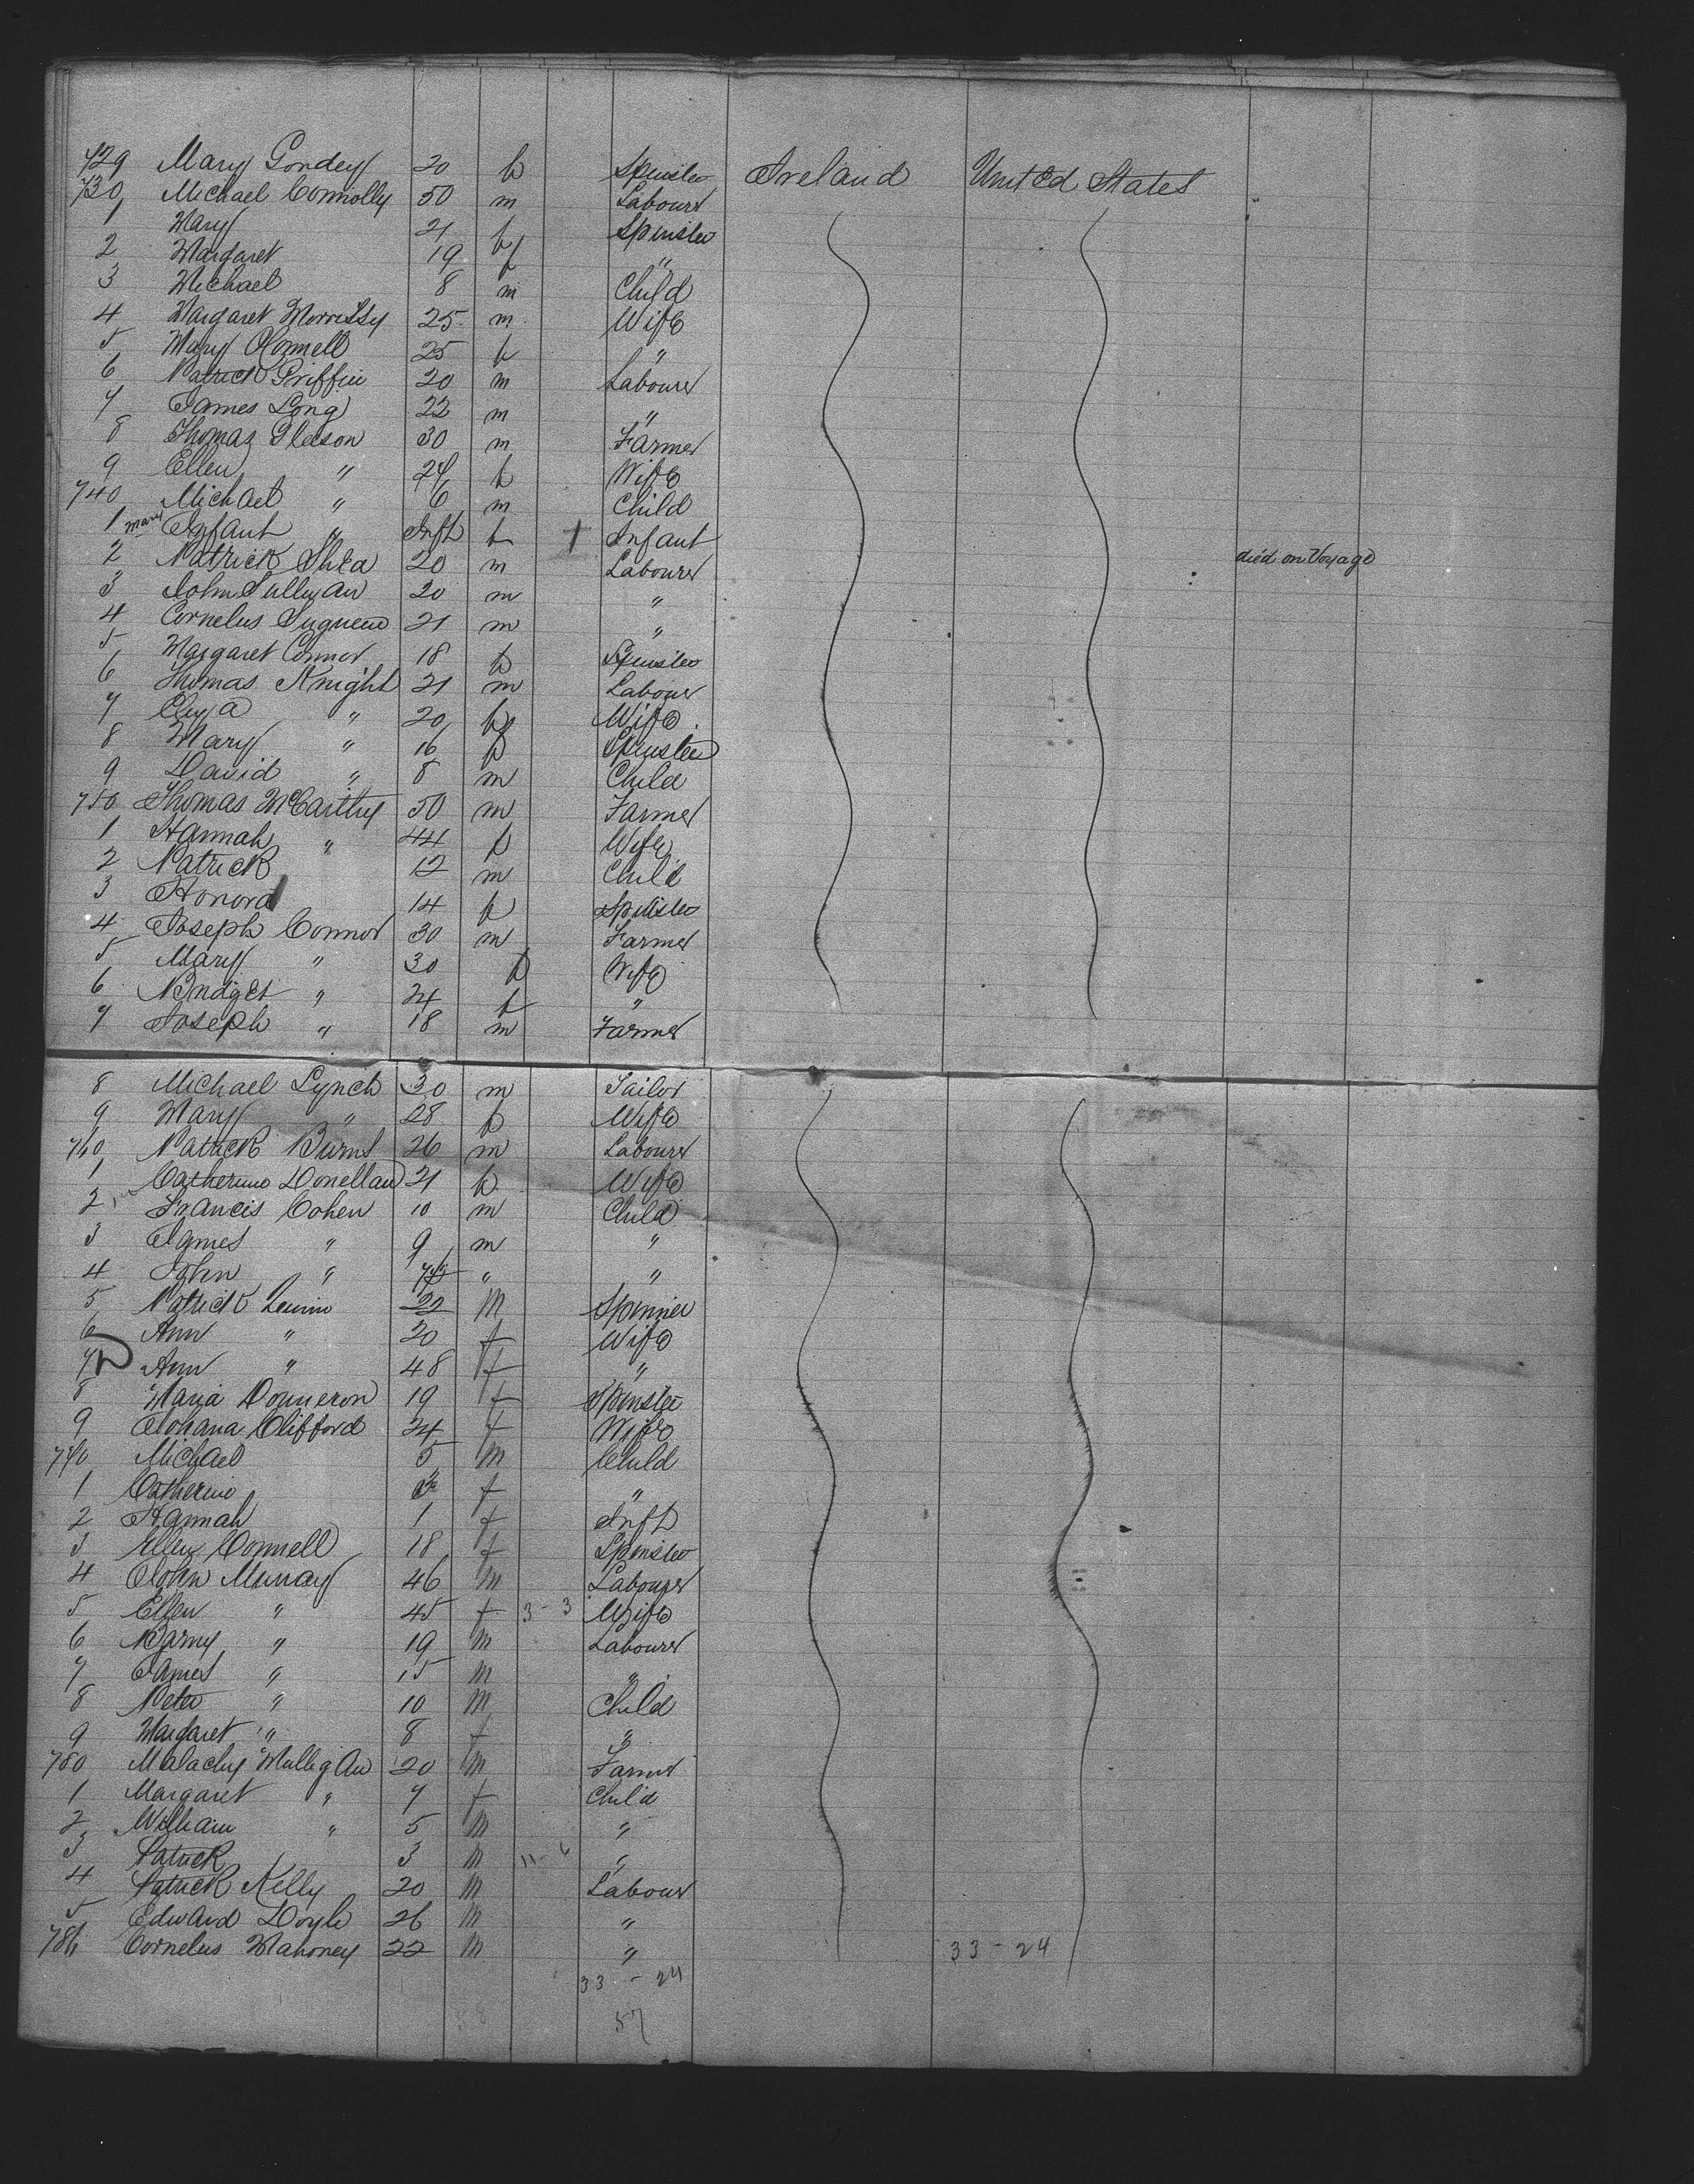 729 Mary Gordey 20 f Spinster Ireland United States
730 Michael Connolly 50 m Labourer
1 Mary 21 f Spinster
2 Margaret 19 f "
3 Michael 8 m Child
4 Margaret Morrissy 25 m Wife
5 Mary OConnell 25 f "
6 Patrick Griffin 20 m Labourer
7 James Long 22 m "
8 Thomas Gleeson 30 m Farmer
9 Ellen " 24 f Wife
740 Michael " 6 m Child
1 Mary Infant " Inft f + Infant died on Voyage
2 Patrick Shea 20 m Labourer
3 John Sullivan 20 m "
4 Cornelus 21 m "
5 Margaret Connor 18 f Spinster
6 Thomas Knight 21 m Labourer
7 Eliza " 20 f Wife
8 Mary " 16 f Spinster
9 David " 8 m Child
750 Thomas McCarthy 50 m Farmer
1 Hannah " 44 f Wife
2 Patrick 12 m Child
3 Honora 14 f Spinster
4 Joseph Connor 30 m Farmer
5 Mary " 30 f Wife
6 Bridget " 24 f "
7 Joseph " 18 m Farmer
8 Michael Lynch 30 m Tailor
9 Mary " 28 f Wife
760 Patrick Burns 26 m Labourer
1 Catherine Donellan 21 f Wife
2 Francis Cohen 10 m Child
3 James " 9 m "
4 John " " "
5 Patrick 22 M
6 Ann " 20 f Wife
7 Ann " 48 f "
8 Maria 19 f Spinster
9 Johana Clifford 24 f Wife
770 Michael 5 M Child
1 Catherine f "
2 Hannah 1 f Inft
3 Ellen Connell 18 f Spinster
4 John Murray 46 M Labourer
5 Ellen " 45 f 3 - 3 Wife
6 Barny " 19 M Labourer
7 James " 15 M "
8 Peter " 10 M Child
9 Margaret " 8 f "
780 Malachy Mulligan 20 M Farmer
1 Margaret " 7 f Child
2 William " 5 M "
3 Patrick 3 M "
4 Patrick Kelly 20 M Labourer
5 Edward Doyle 26 M "
786 Cornelus Mahoney 22 M " 33 - 24
33 - 24
57